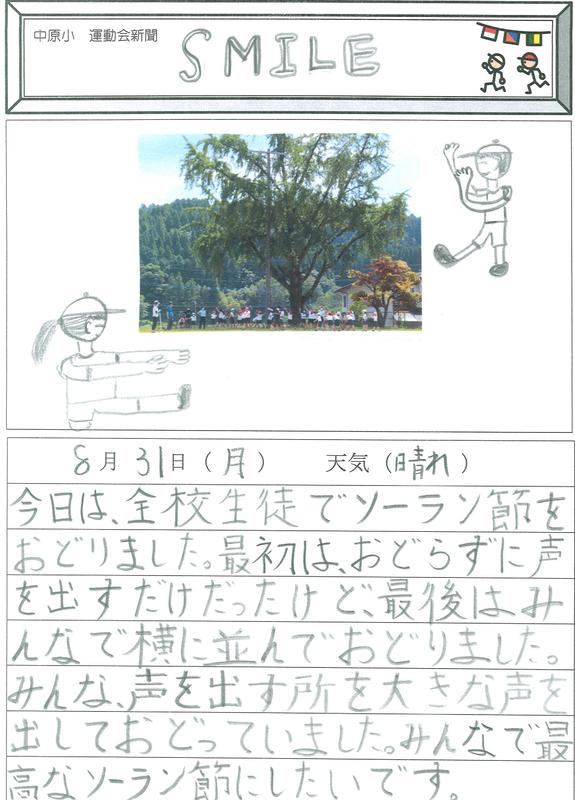 中原小 運動会新聞
SMILE
8月31日(月) 天気(晴れ)
今日は、全校生徒でソーラン節を
おどりました。最初は、おどらずに声
を出すだけだったけど、最後はみ
んなで横に並んでおどりました。
みんな、声を出す所を大きな声を
出しておどっていました。みんなで最
高なソーラン節にしたいです。